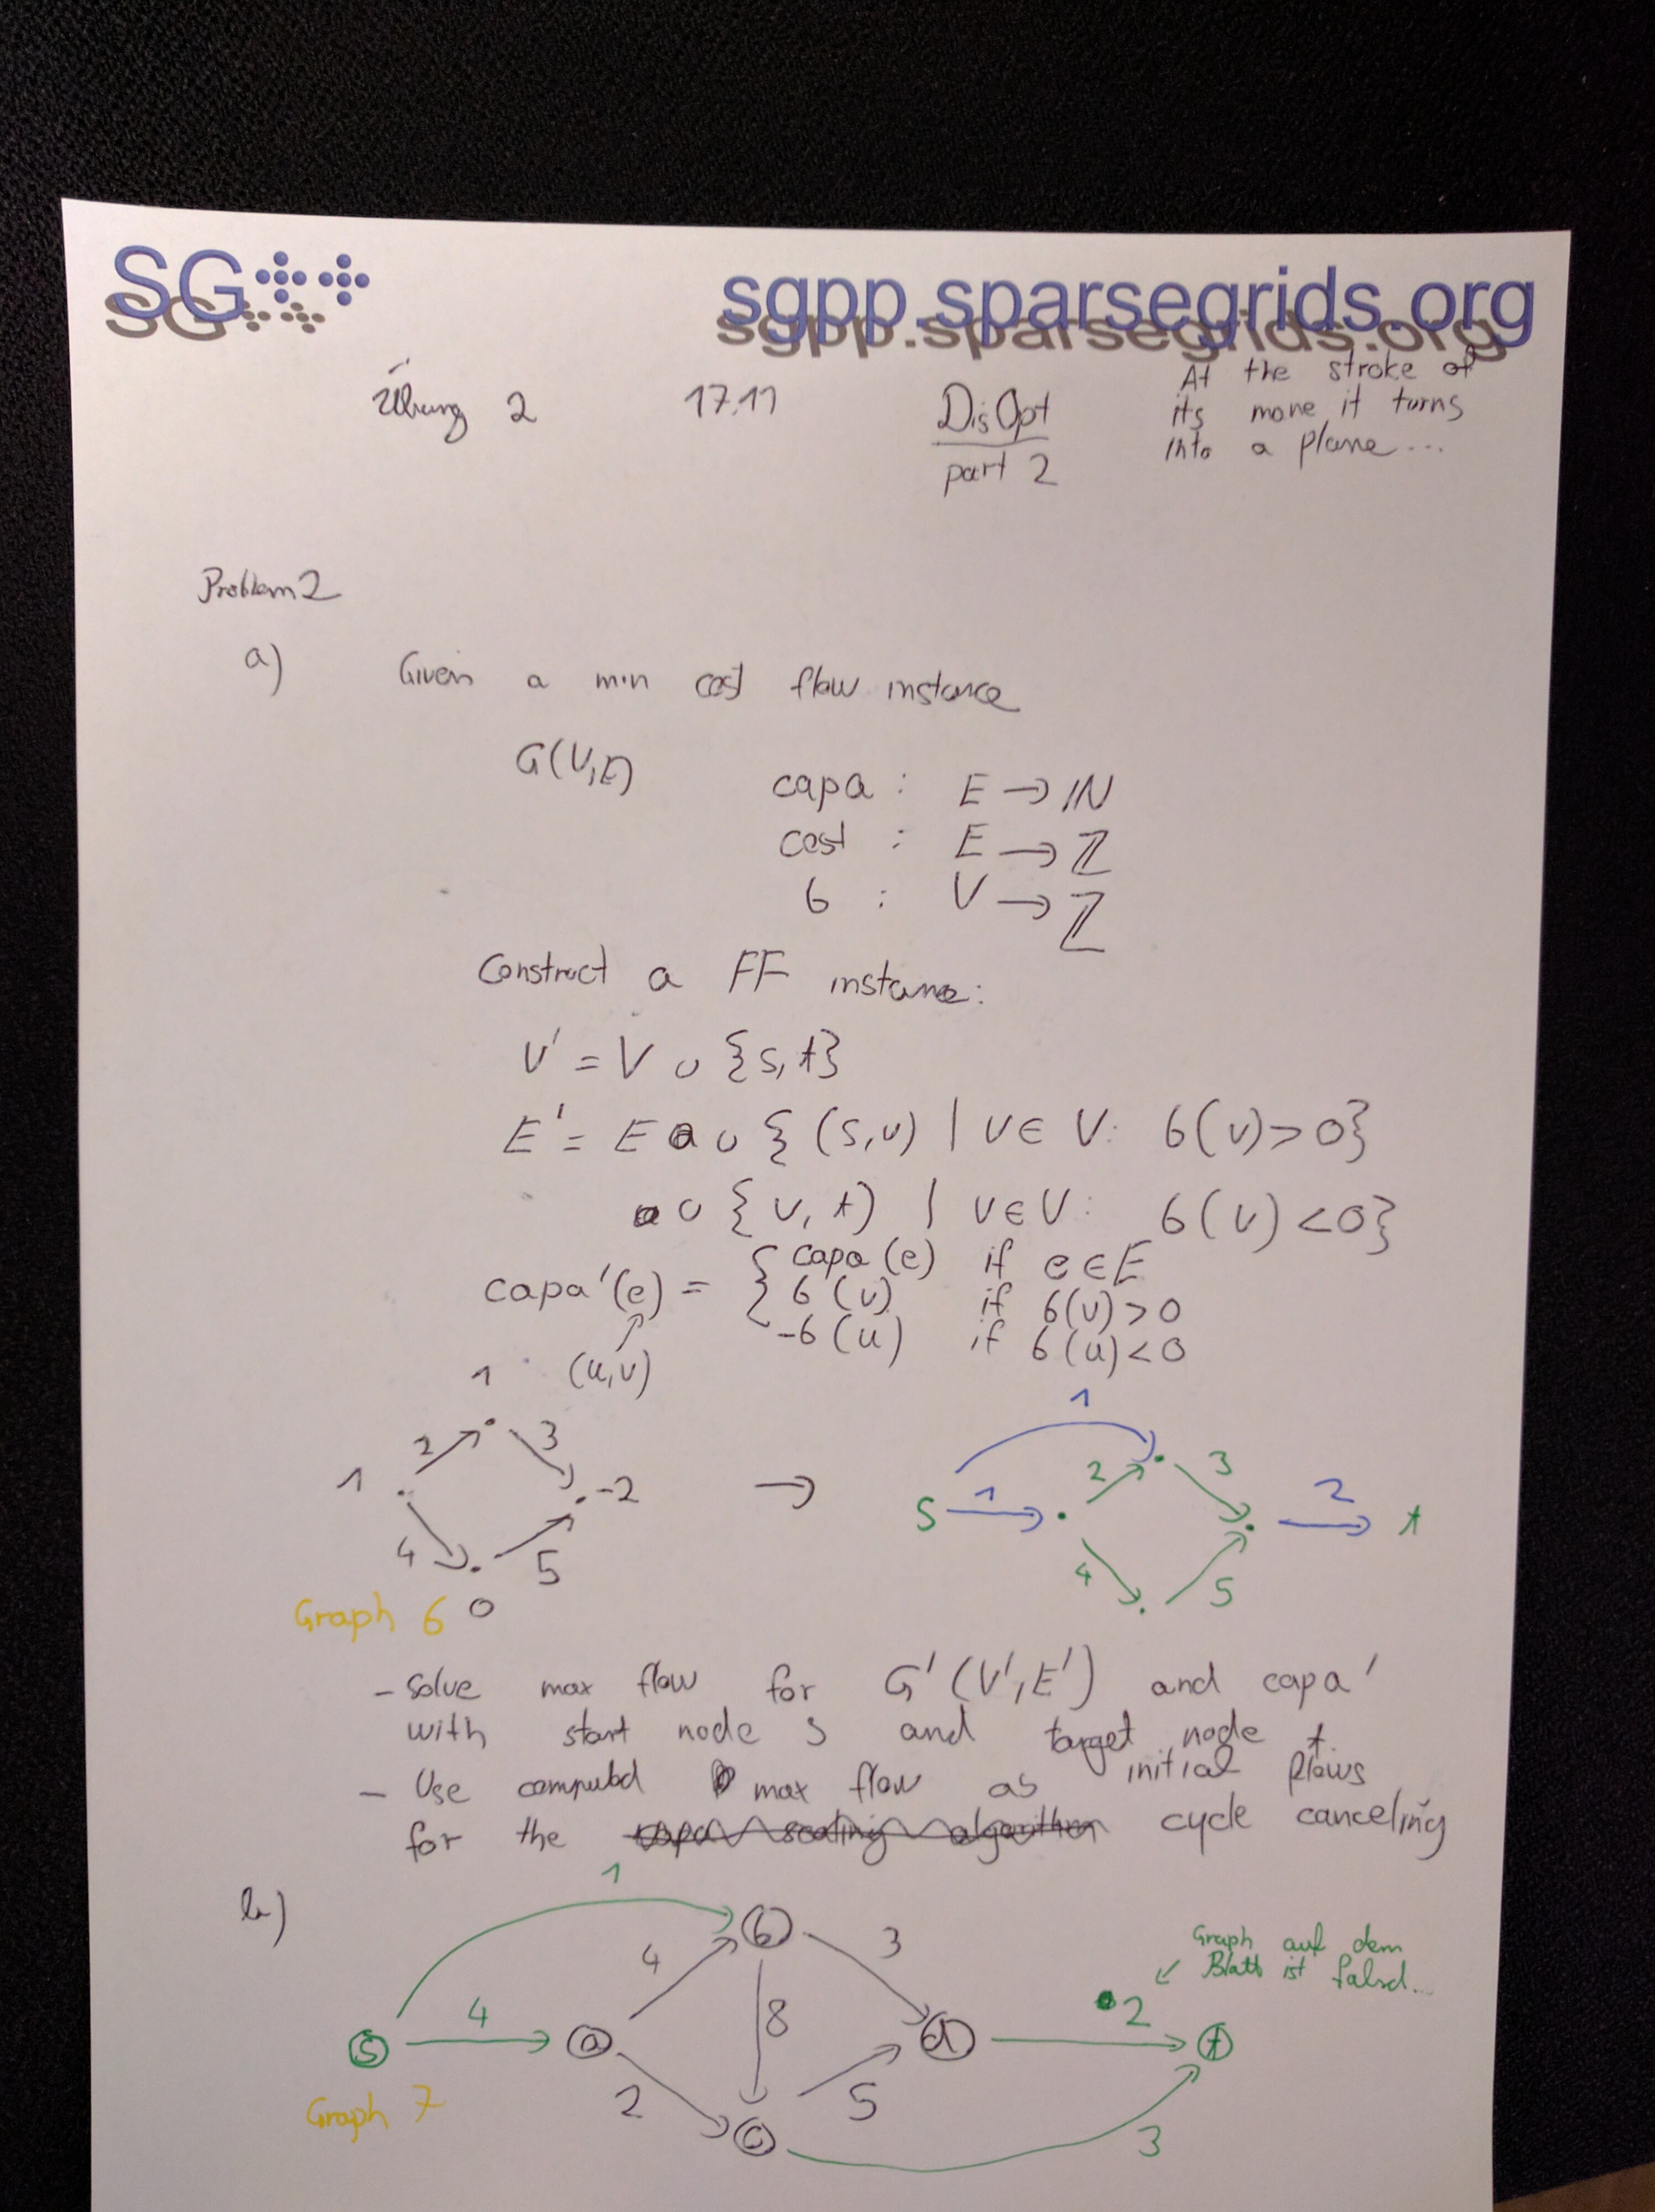 SG++
sgpp.sparsegrids.org
Übung 2 17.11 DisOpt
part 2
At the stroke of
its mane it turns
into a plane...
Problem 2
a) Given a min cost flow instance
G(V,E) capa : E → ℕ
cost : E → ℤ
b : V → ℤ
Construct a FF instance:
V' = V ∪ {s,t}
E' = E ∪ { (s,v) | v ∈ V: b(v) > 0}
∪ { v, t) | v ∈ V: b(v) < 0}
capa'(e) = { capa(e) if e ∈ E
b(v) if b(v) > 0
-b(u) if b(u) < 0
(u,v)
1
2 3
1 -2
4 5
0
Graph 6
→
1
2 3
s 1 2 t
4 5
- Solve max flow for G'(V',E') and capa'
with start node s and target node t.
- Use computed max flow as initial flows
for the capa scaling algorithm cycle canceling
b)
1
b
4 3
Graph auf dem
Blatt ist falsch...
s 4 a 8 d 2 t
2 5
c 3
Graph 7